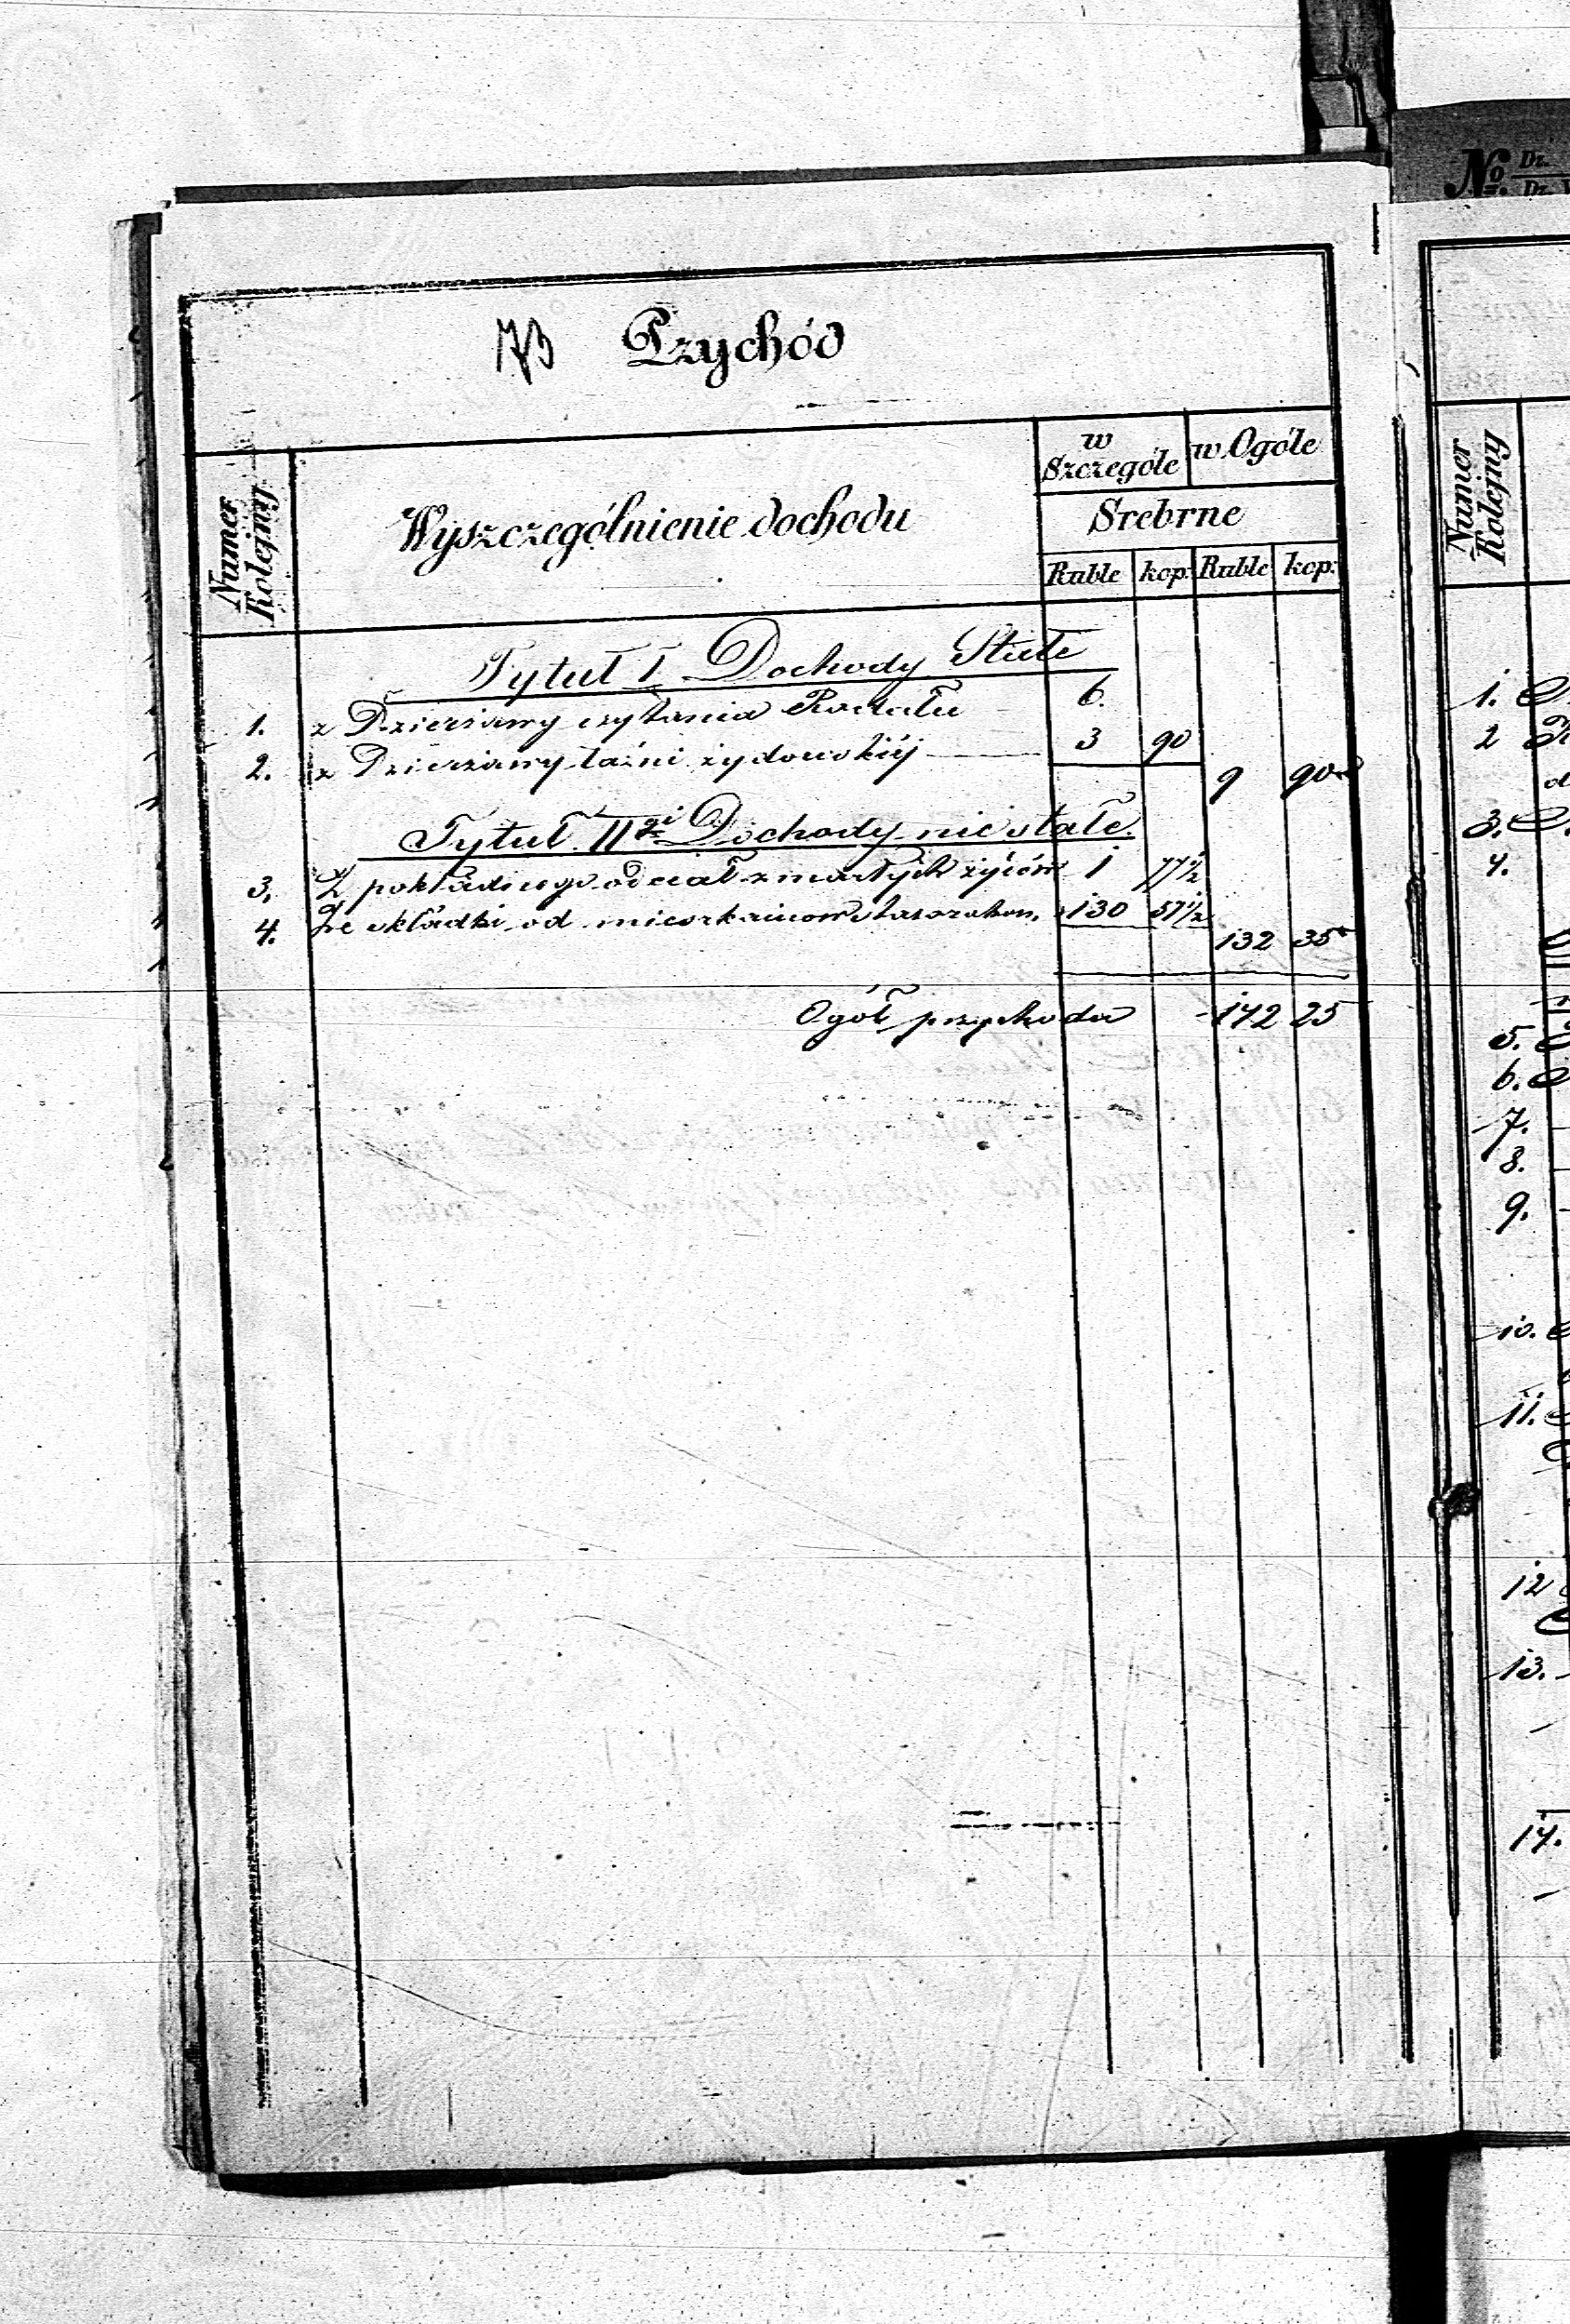 73 Przychód
Numer Kolejny
Wyszczególnienie dochodu
w Szczególe
w Ogóle
Srebrne
Ruble kop: Ruble kop:
Tytuł I Dochody Stałe
1. z Dzierżawy czytania Rodału 6.
2. z Dzierżawy łaźni żydowskiéj 3 90
9 90
Tytuł IIgi Dochody nie stałe.
3. Z pokładnego od ciał zmarłych żydów 1 77 1/2
4. Ze składki od mieszkańców starozakon. 130 57 1/2
132 35
Ogół przychodu 142 25
№ Dz.
Dz.
Numer Kolejny
1.
2
3.
4.
5.
6.
7.
8.
9.
10.
11.
12
13.
14.